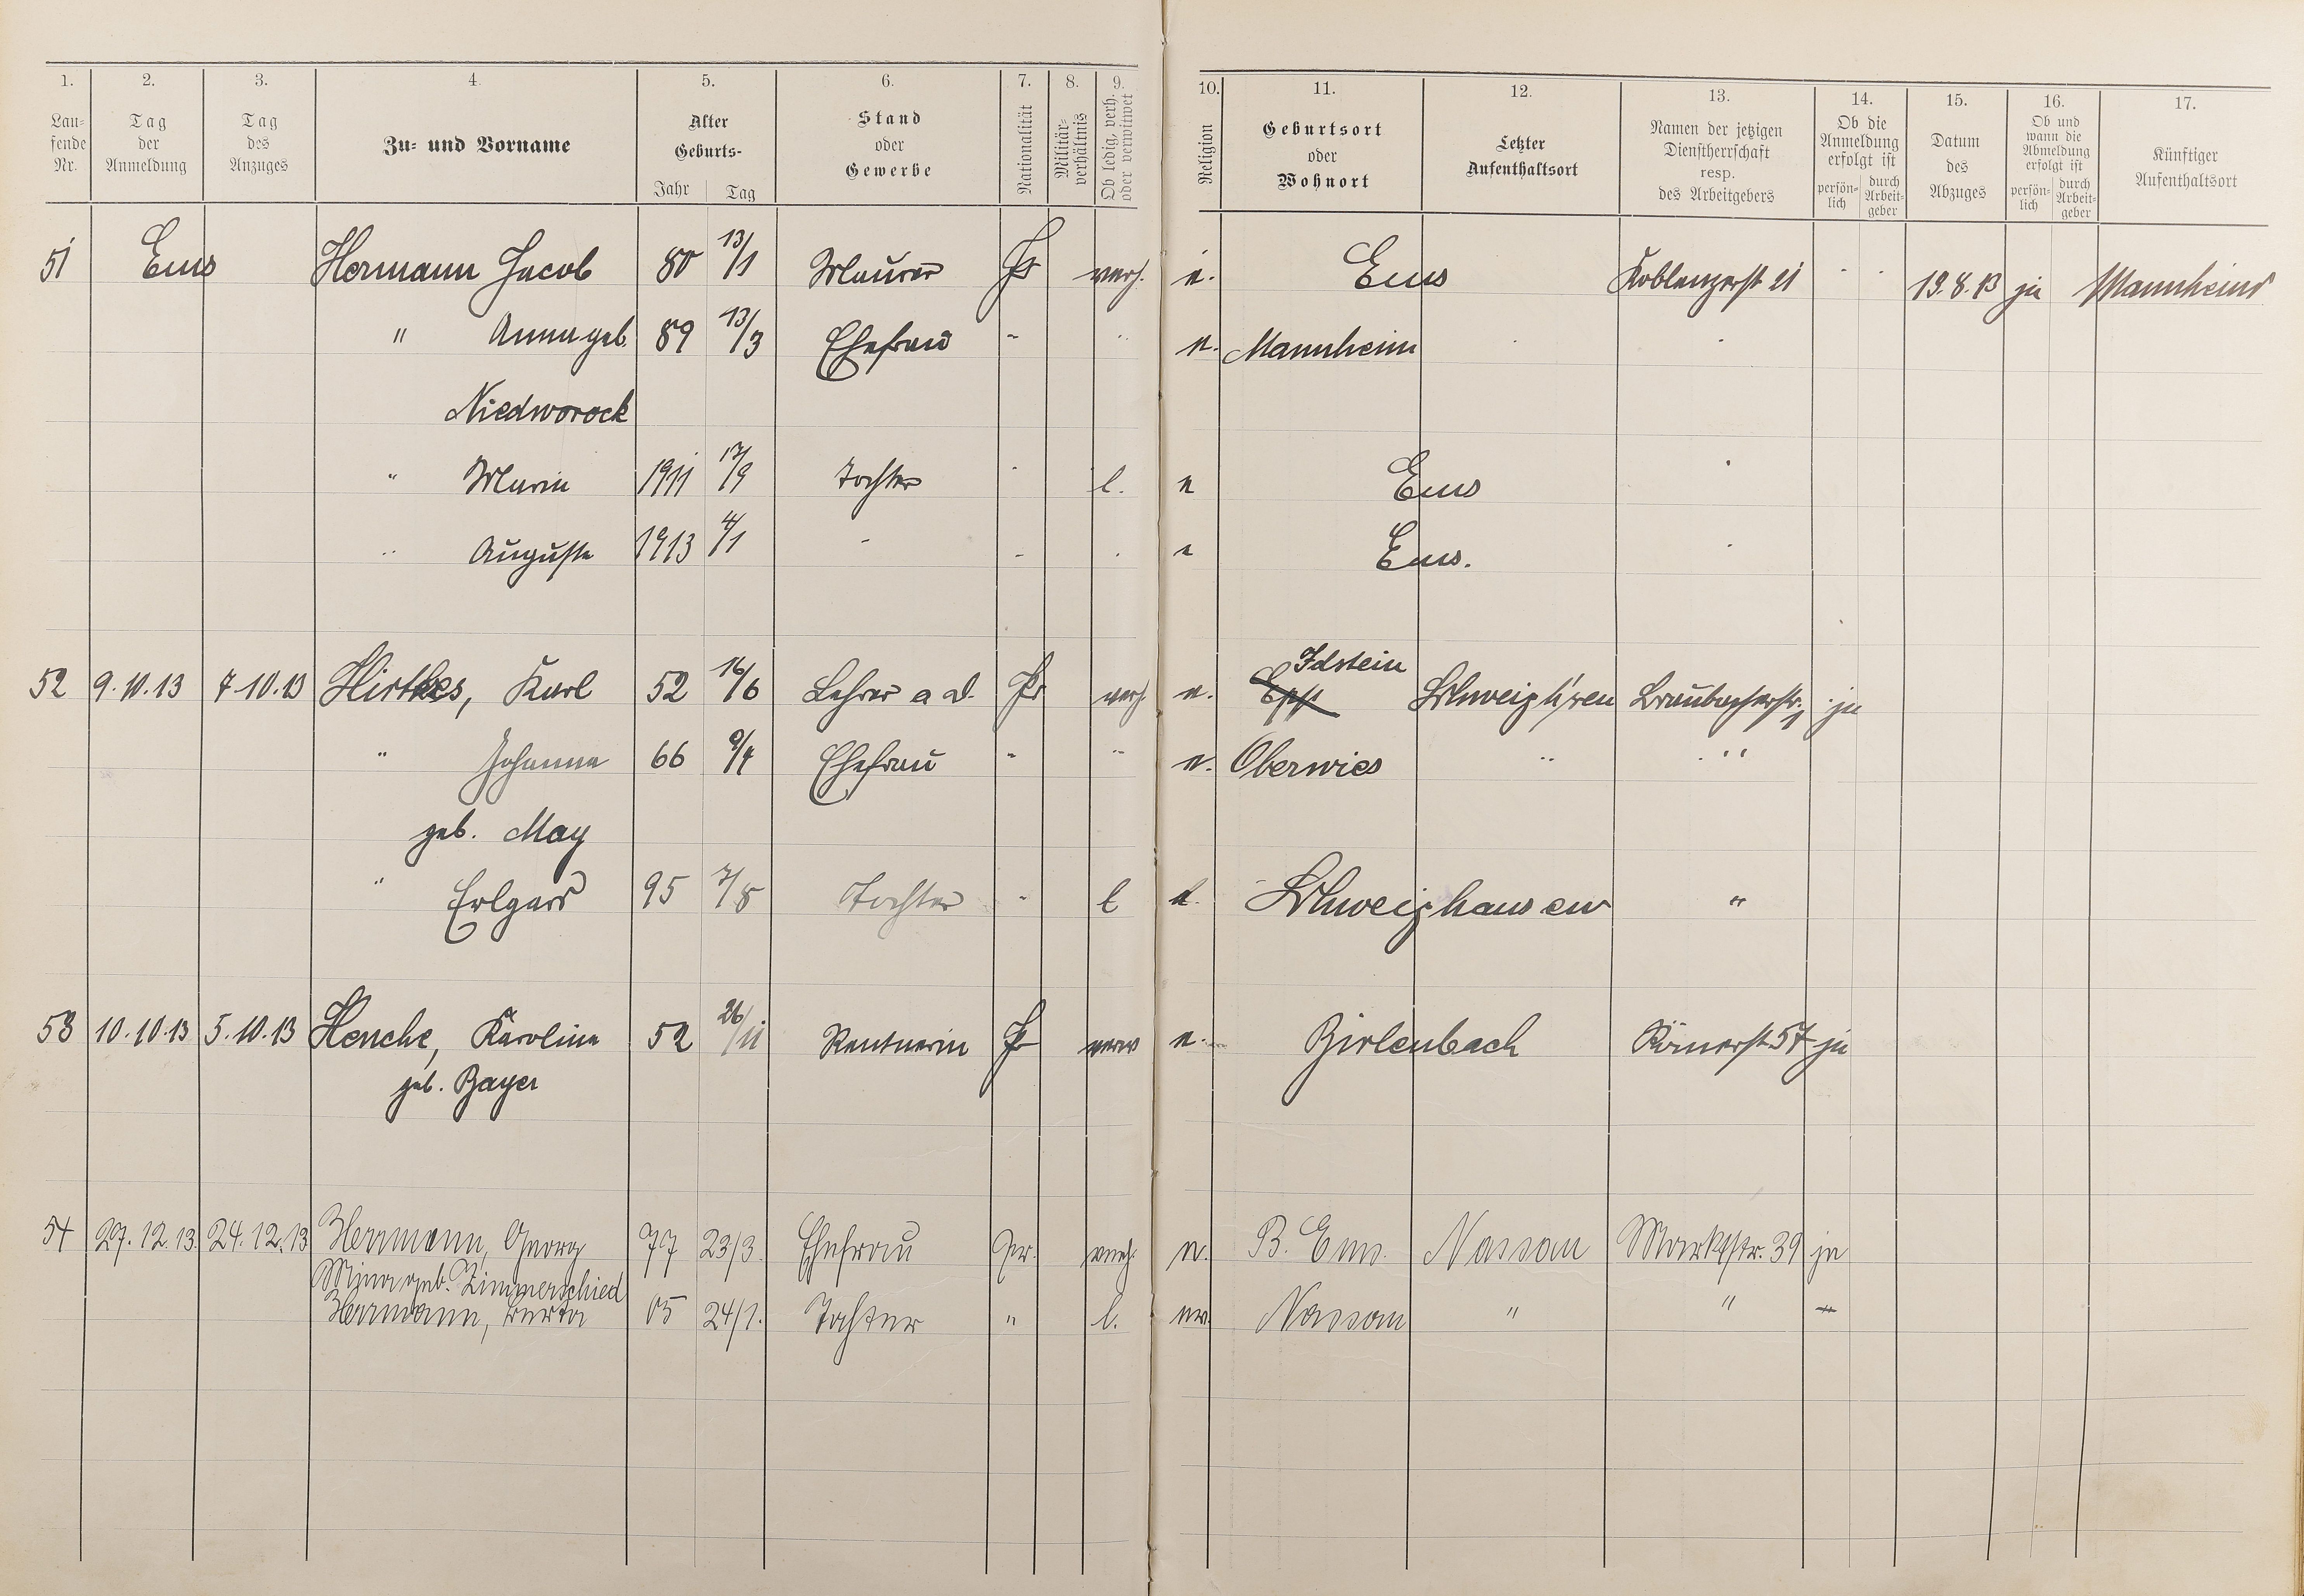 1. 2. 3. 4. 5. 6. 7. 8. 9. 10. 11. 12. 13. 14. 15. 16. 17.
Laufende Nr. Tag der Anmeldung Tag des Anzuges Zu- und Vorname Alter Geburts- Jahr Tag Stand oder Gewerbe Nationalität Militärverhältnis Ob ledig, verh. oder verwitwet Religion Geburtsort oder Wohnort Letzter Aufenthaltsort Namen der jetzigen Dienstherrschaft resp. des Arbeitgebers Ob die Anmeldung erfolgt ist persönlich durch Arbeitgeber Datum des Abzuges Ob und wann die Abmeldung erfolgt ist persönlich durch Arbeitgeber Künftiger Aufenthaltsort
51 Ems Hermann Jacob 80 13/1 Maurer Pr verh. e. Ems Koblenzerst 21 19.8.13 ja Mannheim
" Anna geb. 89 13/3 Ehefrau " " e. Mannheim
Niedworock
" Maria 1911 17/9 Tochter " l. e Ems
" Auguste 1913 4/1 " " " e Ems.
52 9.10.13 7.10.13 Hirthes, Karl 52 16/6 Lehrer a D. Pr verh. e. Idstein Schweigh'sen Braubacherstr. 1 ja
" Johanna 66 9/4 Ehefrau " " e. Oberwies " "
geb. May
" Erlgard 95 7/8 Tochter " l e. Schweighausen "
53 10.10.13 5.10.13 Henche, Karoline 52 26/11 Rentnerin Pr verw e. Birlenbach Römerst 57 ja
geb. Bayer
54 27.12.13. 24.12.13 Herrmann, Georg 77 23/3 Ehefrau Pr. verh. e. B. Ems. Nassau Marktstr. 39 ja
Mina geb. Zimmerschied
Herrmann, Berta 05 24/1. Tochter " l. ev. Nassau " " "